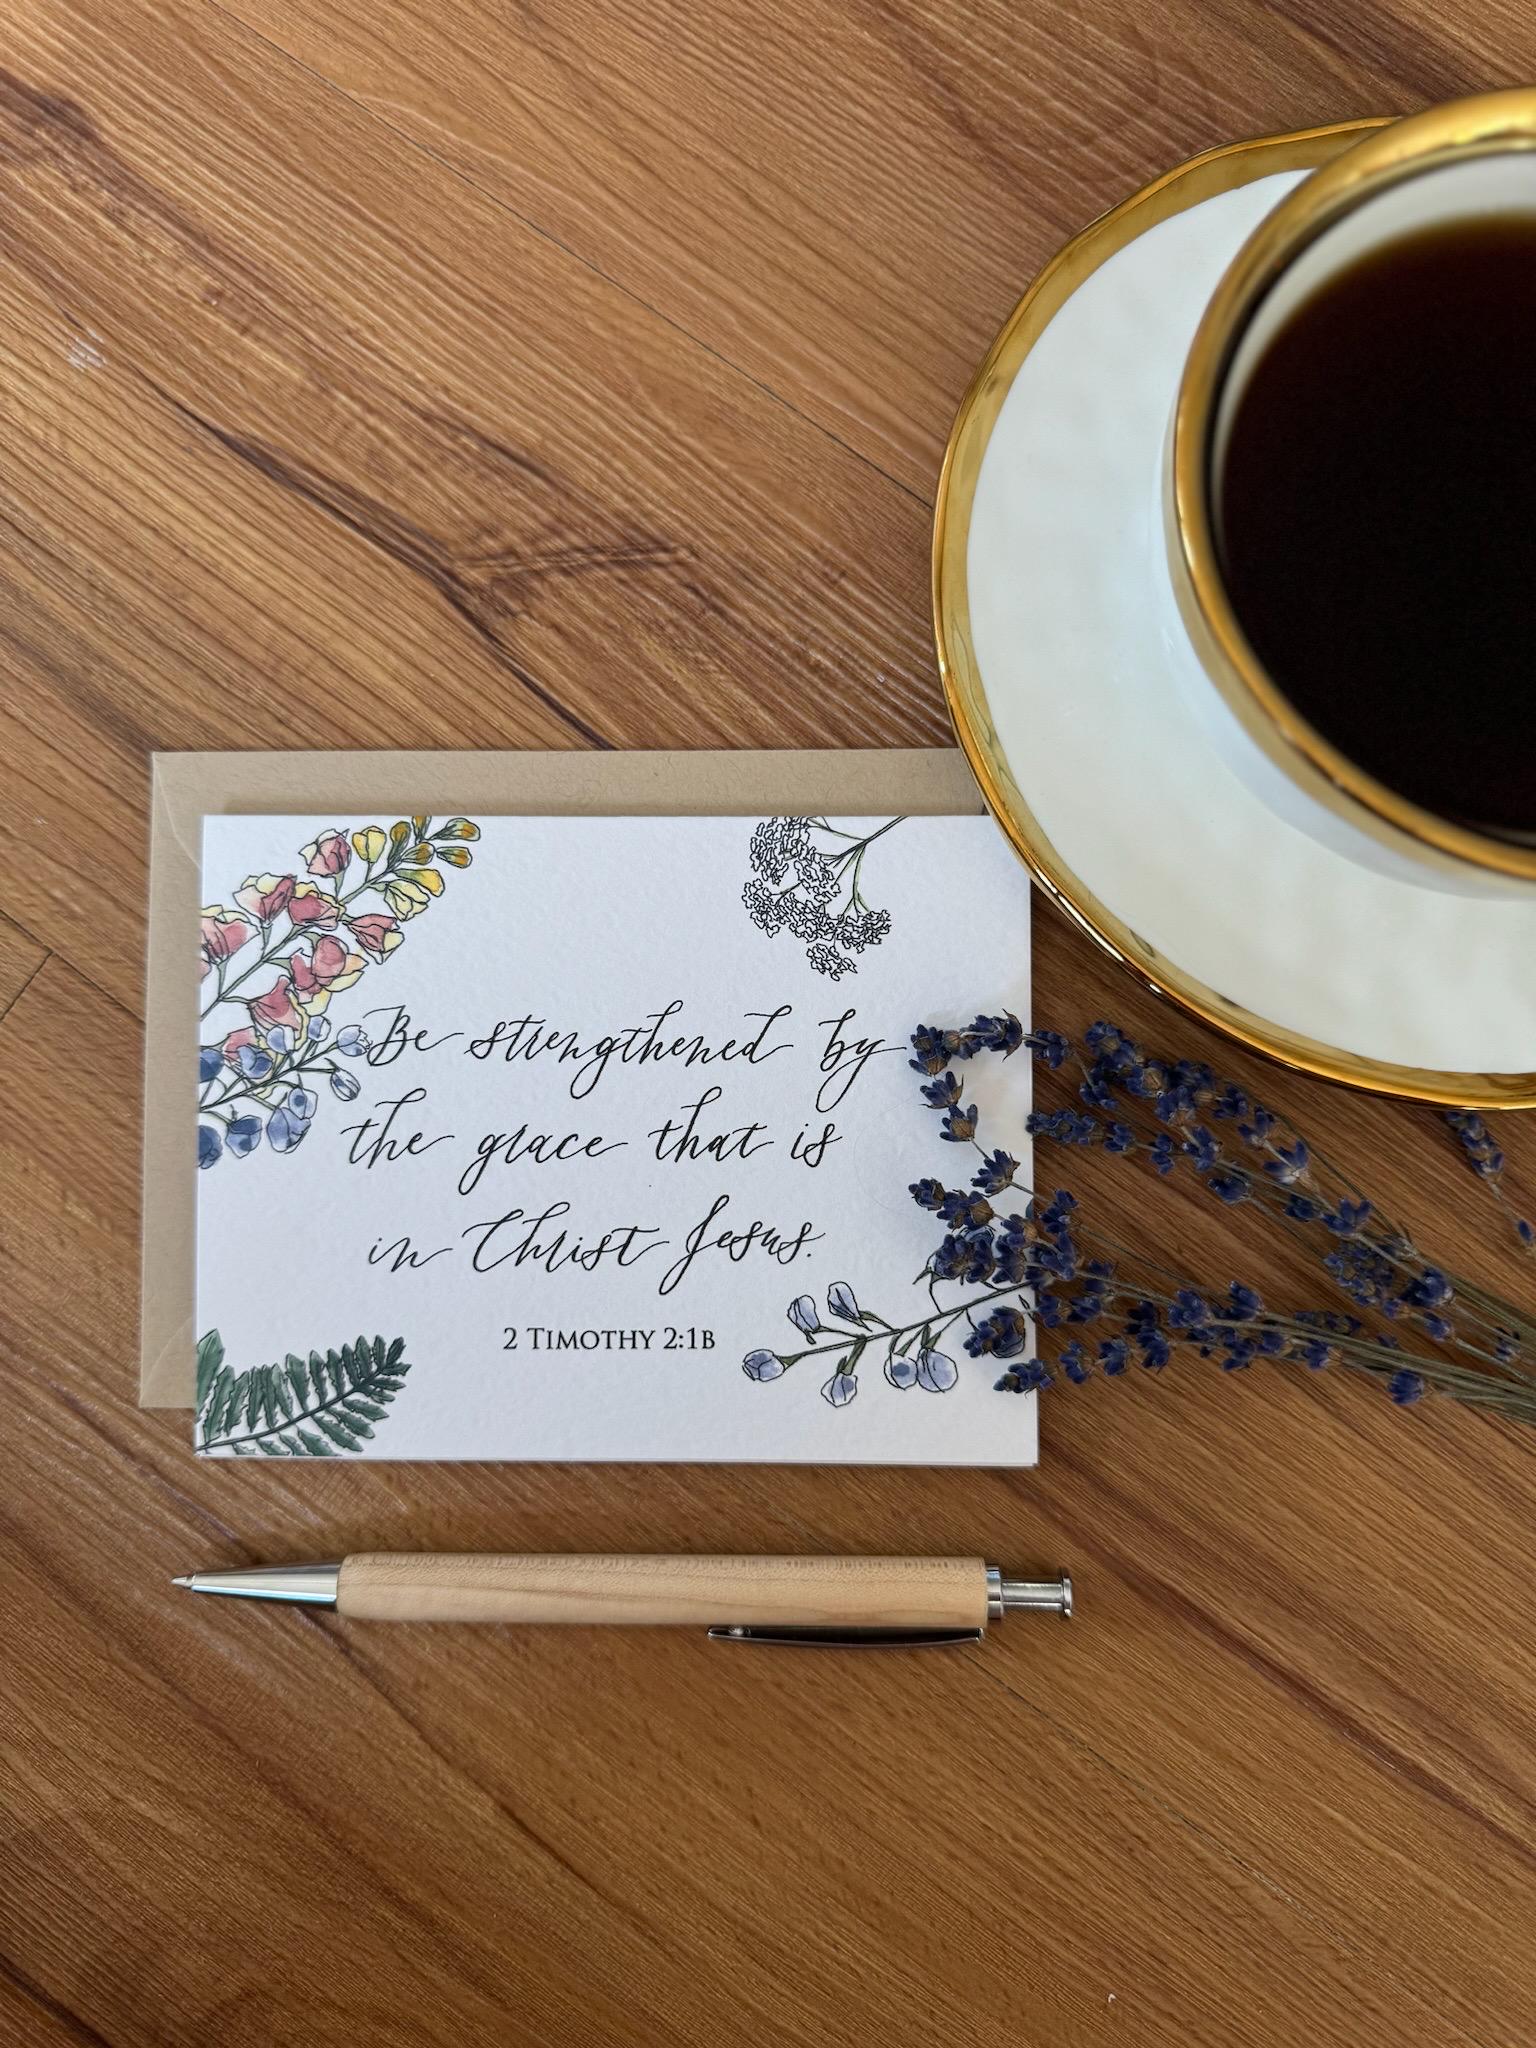 Be strengthened by
the grace that is
in Christ Jesus.
2 Timothy 2:1b